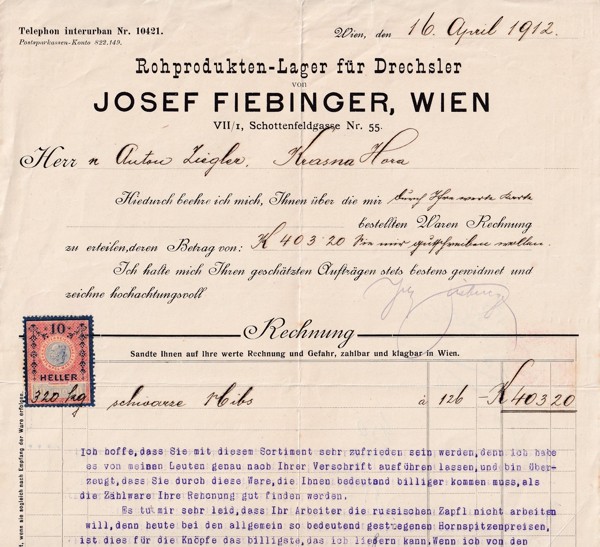 Telephon interurban Nr. 10421.
Postsparkassen-Konto 822.149.
Wien, den 16. April 1912.
Rohprodukten-Lager für Drechsler
von
JOSEF FIEBINGER, WIEN
VII/1, Schottenfeldgasse Nr. 55.
Herrn Anton Ziegler, Krasna Hora
Hiedurch beehre ich mich, Ihnen über die mir durch Ihre werte Karte
bestellten Waren Rechnung
zu erteilen, deren Betrag von: K 403·20 Sie mir gutschreiben wollen.
Ich halte mich Ihren geschätzten Aufträgen stets bestens gewidmet und
zeichne hochachtungsvoll
Rechnung
Sandte Ihnen auf Ihre werte Rechnung und Gefahr, zahlbar und klagbar in Wien.
10
HELLER
320 kg schwarze à 126 K 403 20
wenn sie sogleich nach Empfang der Ware erfolgen.
Ich hoffe, dass Sie mit diesem Sortiment sehr zufrieden sein werden, denn ich habe
es von meinen Leuten genau nach Ihrer Verschrift ausführen lassen, und bin über-
zeugt, dass Sie durch diese Ware, die Ihnen bedeutend billiger kommen muss, als
die Zählware Ihre Rehonung gut finden werden.
Es tu mir sehr leid, dass Ihr Arbeiter die russischen Zapfl nicht arbeiten
will, denn heute bei den allgemein so bedeutend gestiegenen Hornspitzenpreisen,
ist dies für die Knöpfe das billigste, das ich liefern kann. Wenn ich von den